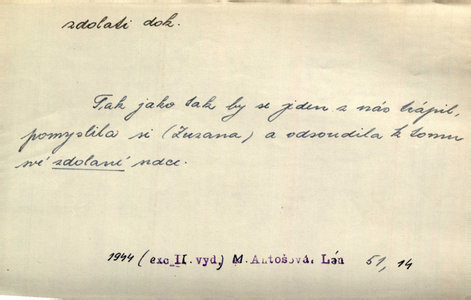 zdolati dok.
Tak jako tak by se jeden z nás trápil,
pomyslila si (Zuzana) a odsoudila k tomu
své zdolané srdce.
1944 (exc. II. vyd.) M. Antošová. Lán 51, 14